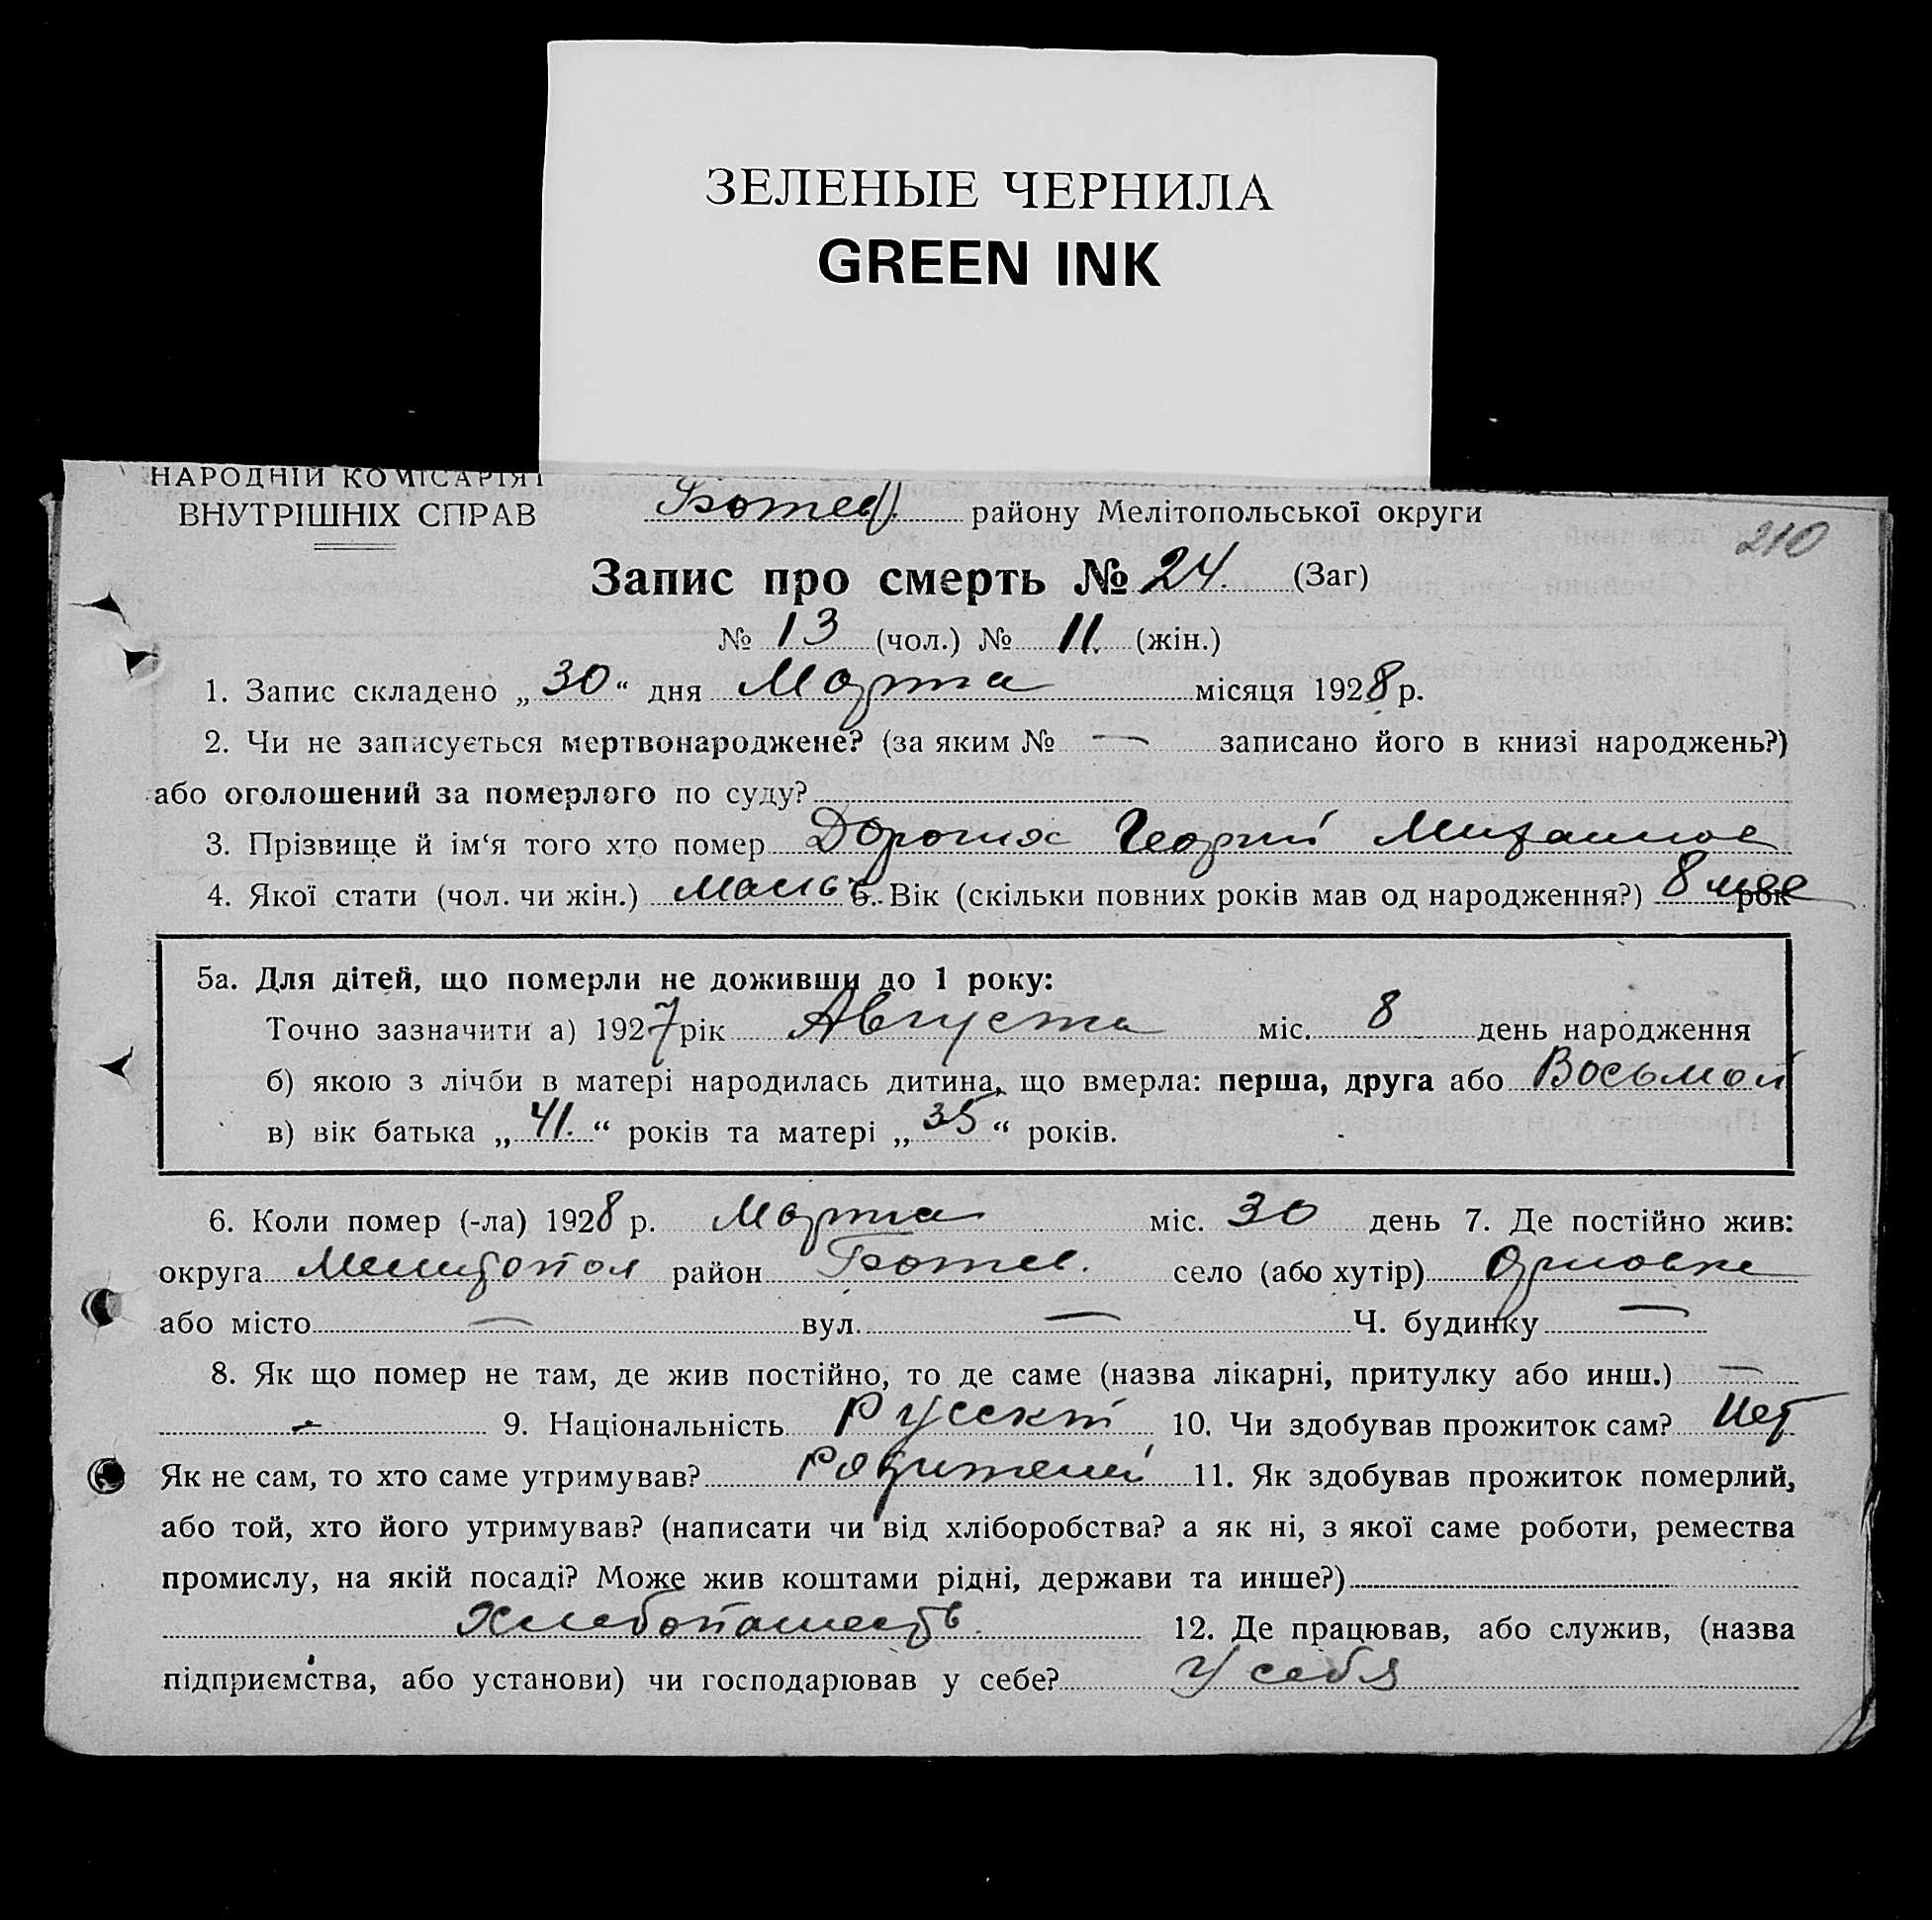 ЗЕЛЕНЫЕ ЧЕРНИЛА
GREEN INK
НАРОДНІЙ КОМІСАРІЯТ
ВНУТРІШНІХ СПРАВ
Ботев. району Мелітопольської округи
210
Запис про смерть № 24. (Заг)
№ 13 (чол.) № 11. (жін.)
1. Запис складено „30“ дня Марта місяця 1928 р.
2. Чи не записується мертвонароджене? (за яким № — записано його в книзі народжень?)
або оголошений за померлого по суду?
3. Прізвище й ім‘я того хто помер Георгий
4. Якої стати (чол. чи жін.) мальч 5. Вік (скільки повних років мав од народження?) 8 мес рок
5а. Для дітей, що померли не доживши до 1 року:
Точно зазначити а) 1927 рік Августа міс. 8 день народження
б) якою з лічби в матері народилась дитина, що вмерла: перша, друга або Восьмой
в) вік батька „41.“ років та матері „35“ років.
6. Коли помер (-ла) 1928 р. Марта міс. 30 день 7. Де постійно жив:
округа Мелитопол район Ботев. село (або хутір) Орловке
або місто — вул. — Ч. будинку —
8. Як що помер не там, де жив постійно, то де саме (назва лікарні, притулку або инш.) —
- 9. Національність Русский 10. Чи здобував прожиток сам? Нет
Як не сам, то хто саме утримував? Родителей 11. Як здобував прожиток померлий,
або той, хто його утримував? (написати чи від хліборобства? а як ні, з якої саме роботи, ремества
промислу, на якій посаді? Може жив коштами рідні, держави та инше?)
Хлебопашеств. 12. Де працював, або служив, (назва
підприємства, або установи) чи господарював у себе? У себя